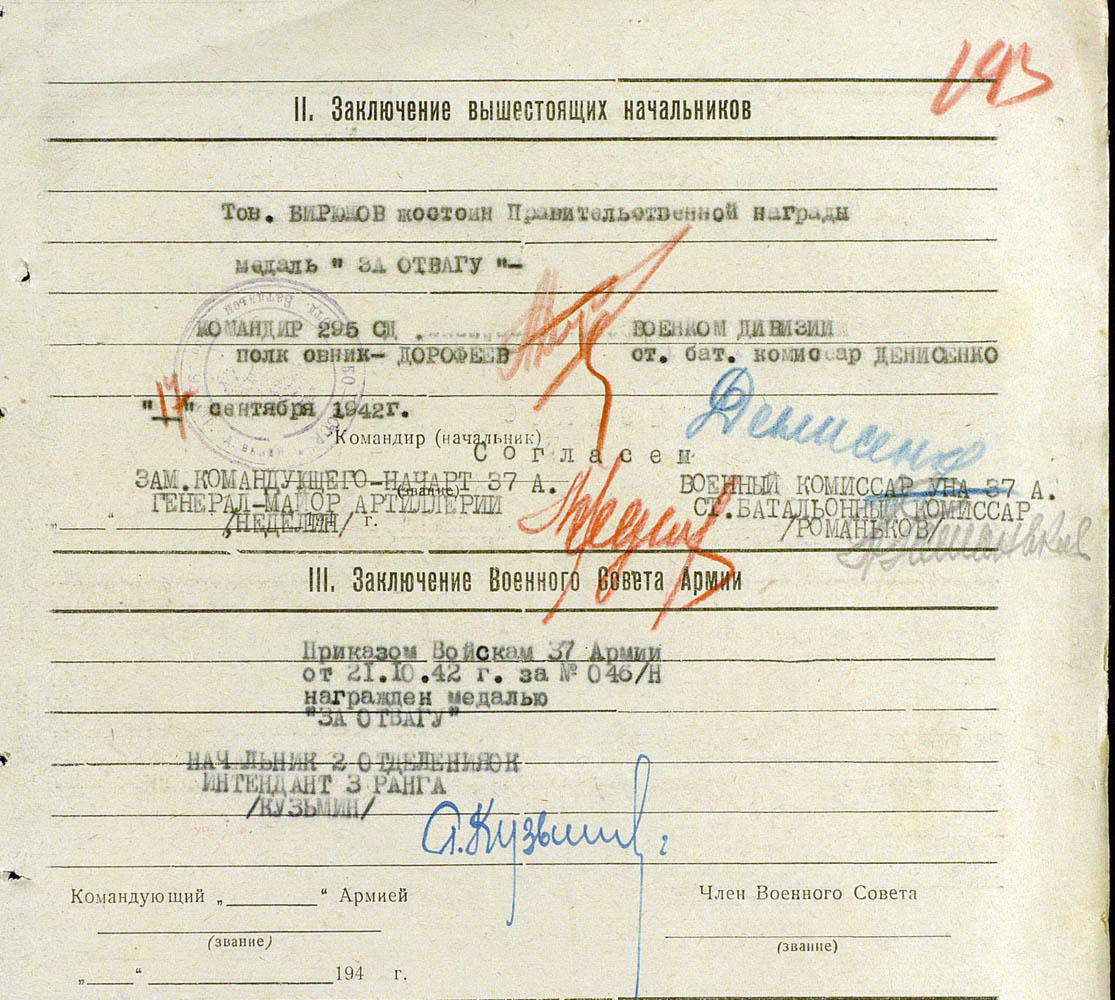 193
II. Заключение вышестоящих начальников
Тов. БИРЮКОВ достоин Правительственной награды
медаль " ЗА ОТВАГУ "-
КОМАНДИР 295 СД . ВОЕНКОМ ДИВИЗИИ
полк овник- ДОРОФЕЕВ ст. бат. комиссар ДЕНИСЕНКО
"17" сентября 1942г.
Денисенко
Командир (начальник)
Согласен
ЗАМ.КОМАНДУЮЩЕГО-НАЧАРТ 37 А. ВОЕННЫЙ КОМИССАР УНА 37 А.
(звание)
ГЕНЕРАЛ-МАЙОР АРТИЛЛЕРИИ СТ.БАТАЛЬОННЫЙ КОМИССАР
„ “ 194 г.
/НЕДЕЛИН/ /РОМАНЬКОВ/
Романьков
III. Заключение Военного Совета Армии
Приказом Войскам 37 Армии
от 21.10.42 г. за № 046/Н
награжден медалью
"ЗА ОТВАГУ"
НАЧАЛЬНИК 2 ОТДЕЛЕНИЯОК
ИНТЕНДАНТ 3 РАНГА
/КУЗЬМИН/
А.Кузьмин
Командующий „ “ Армией Член Военного Совета
(звание) (звание)
„ “ 194 г.